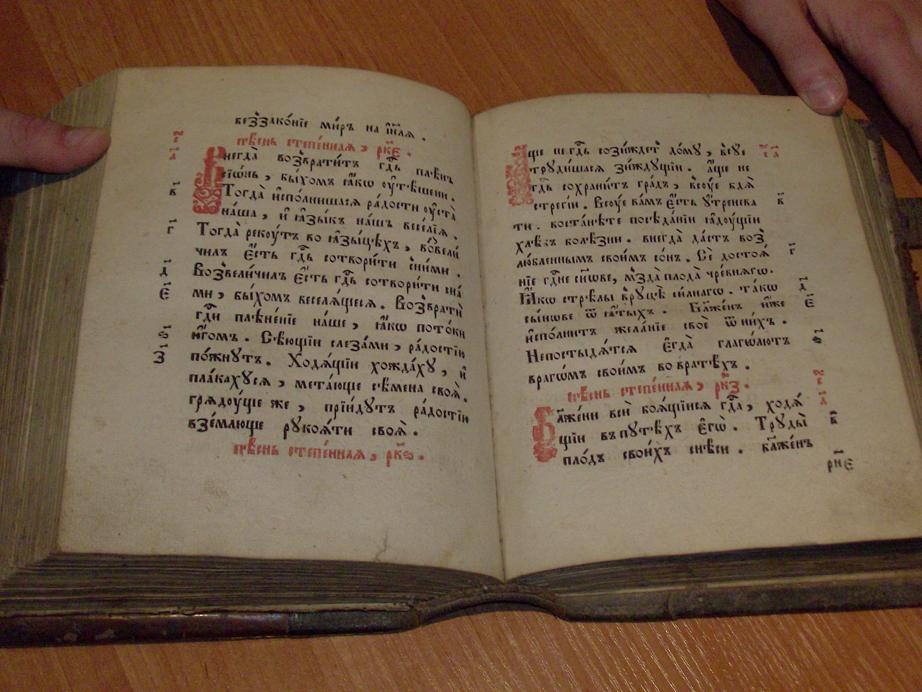 беззако́нїе ми́ръ на і҆и҃лѧ .
пѣ́снь степе́ннаѧ , рк҃е .
Внегда̀ возврати́тъ гд҇ь плѣ́нъ
сїѡ́нь , бы́хомъ ꙗ҆́кѡ ᲂу҆тѣ́шени .
Тогда̀ и҆спо́лнишасѧ ра́дости ᲂу҆ста̀
на́ша , и҆ ꙗ҆зы́къ на́шъ весе́лїѧ .
Тогда̀ рекꙋ́тъ во ꙗ҆зы́цѣхъ , во́звели
чилъ є҆́сть гд҇ь сотвори́ти сни́ми .
Возвели́чилъ є҆́сть гд҇ь сотвори́ти сна́
ми , бы́хомъ веселѧ́щесѧ . Возвратѝ
гд҇и плѣне́нїе на́ше , ꙗ҆́кѡ пото́ки
ю҆́гомъ . Сѣ́ющїи слеза́ми , ра́достїю
по́жнꙋтъ . Ходѧ́щїи хожда́хꙋ , и҆
пла́кахꙋсѧ , мета́юще сѣ́мена своѧ̀ .
грѧдꙋ́ще же , прїи́дꙋтъ ра́достїю
взе́млюще рꙋкоѧ́ти своѧ̀ .
пѣ́снь степе́ннаѧ , рк҃ѕ .
А҆́ще не гд҇ь сози́ждетъ до́мꙋ , всꙋ́е
трꙋди́шасѧ зи́ждꙋщїи . а҆́ще не
гд҇ь сохрани́тъ гра́дъ , всꙋ́е бдѧ̀
стрегїи . Всꙋ́е ва́мъ є҆́сть ᲂу҆́тренева
ти . воста́нете посѣда́нїи ꙗ҆дꙋ́щїи
хлѣ́бъ болѣ́зни . внегда̀ да́стъ воз̾
лю́бленнымъ свои́мъ со́нъ . Сѐ достоѧ́
нїе гд҇не сн҃ове , мзда̀ плода̀ чре́внѧгѡ .
Ꙗ҆́кѡ стре́лы врꙋцѣ̀ си́лнагѡ . та́кѡ
сы́нове ѿ ѧ҆́тыхъ . Бл҃же́нъ и҆́же
и҆спо́лнитъ жела́нїе своѐ ѿ ни́хъ .
Непостыдѧ́тсѧ є҆гда̀ глаго́лютъ
врагѡ́мъ свои́мъ во вратѣ́хъ .
пѣ́снь степе́ннаѧ , рк҃з .
Бл҃же́ни всѝ боѧ́щїисѧ гд҇а , ходѧ́
щїи въ пꙋте́хъ є҆гѡ̀ . Трꙋды̀
пло́дъ свои́хъ снѣ́си . бл҃же́нъ
рн҃е